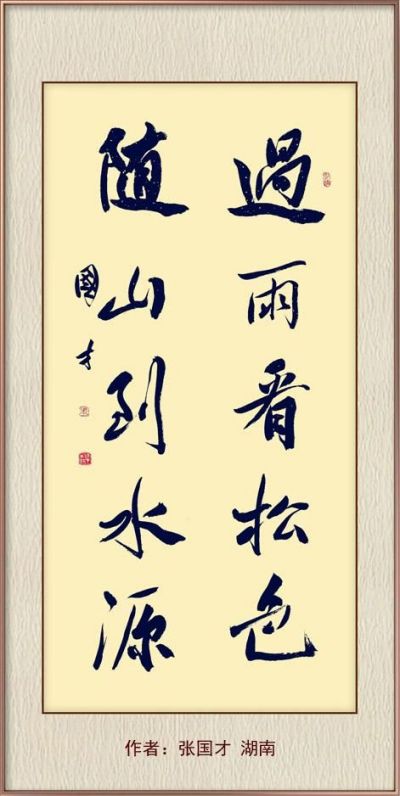 過雨看松色
随山到水源
國才
作者：张国才 湖南